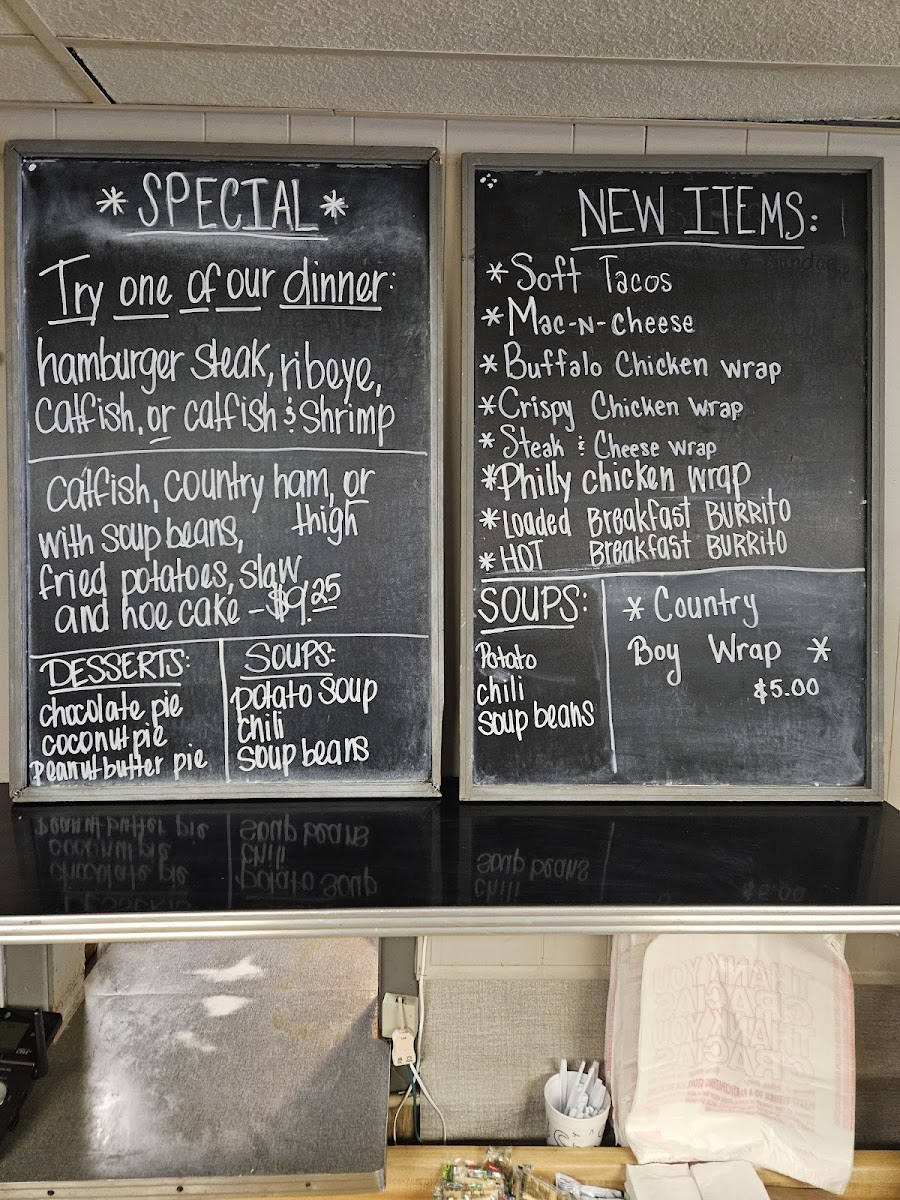 * SPECIAL *
Try one of our dinner:
hamburger steak, ribeye,
catfish, or catfish & shrimp
catfish, country ham, or
thigh
with soup beans,
fried potatoes, slaw
and hoe cake - $9.25
DESSERTS:
chocolate pie
coconut pie
Peanut butter pie
SOUPS:
potato soup
chili
soup beans
NEW ITEMS:
* Soft Tacos
* Mac-N-Cheese
* Buffalo Chicken wrap
* Crispy Chicken wrap
* Steak & Cheese wrap
* Philly chicken wrap
* Loaded Breakfast BURRITO
* HOT Breakfast BURRITO
SOUPS:
Potato
chili
soup beans
* Country
Boy Wrap *
$5.00
THANK YOU
GRACIAS
THANK YOU
GRACIAS